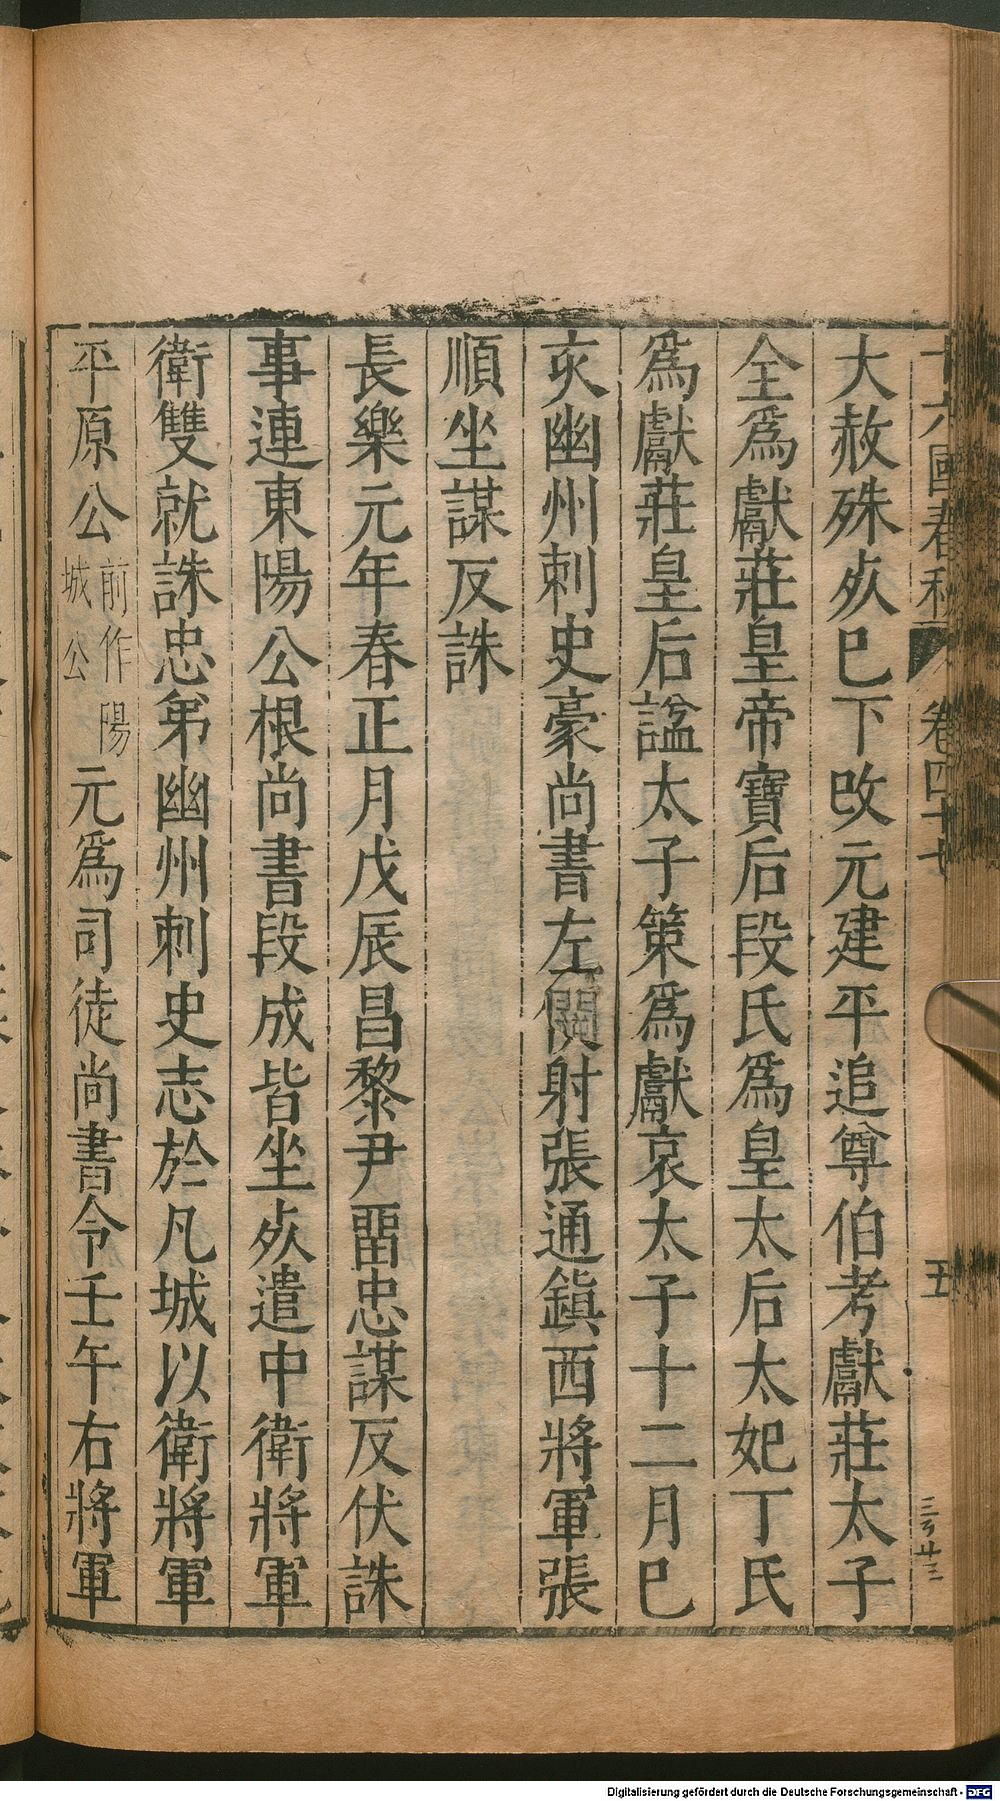 十六國春秋 卷四十七 五
大赦殊死巳下改元建平追尊伯考獻莊太子
全爲獻莊皇帝寶后段氏爲皇太后太妃丁氏
爲獻莊皇后諡太子策爲獻哀太子十二月巳
亥幽州刺史豪尚書左僕射張通鎮西將軍張
順坐謀反誅
長樂元年春正月戊辰昌黎尹畱忠謀反伏誅
事連東陽公根尚書段成皆坐死遣中衛將軍
衛雙就誅忠弟幽州刺史志於凡城以衛將軍
平原公前作陽城公元爲司徒尚書令壬午右將軍
Digitalisierung gefördert durch die Deutsche Forschungsgemeinschaft - DFG